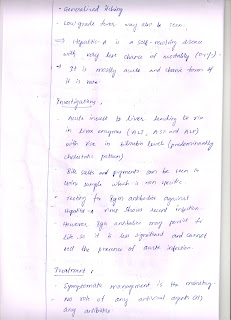 - Generalised Itching
- Low grade fever may also be seen.
⇒ Hepatitis-A is a self-limiting disease
with very less chance of mortality
- It is mostly acute and chronic form of
it is rare.
Investigations,
- Acute insult to liver leading to rise
in liver enzymes (ALT, AST and ALP)
with rise in bilirubin levels (predominantly
cholestatic pattern)
- Bile salts and pigments can be seen in
urine sample which is non specific.
- Testing for IgM antibodies against
Hepatitis-A virus shows recent infection.
However, IgG antibodies may persist for
life so it is less significant and cannot
tell the presence of acute infection.
Treatment,
- Symptomatic management is the mainstay
- No role of any antiviral agents or
any antibiotics